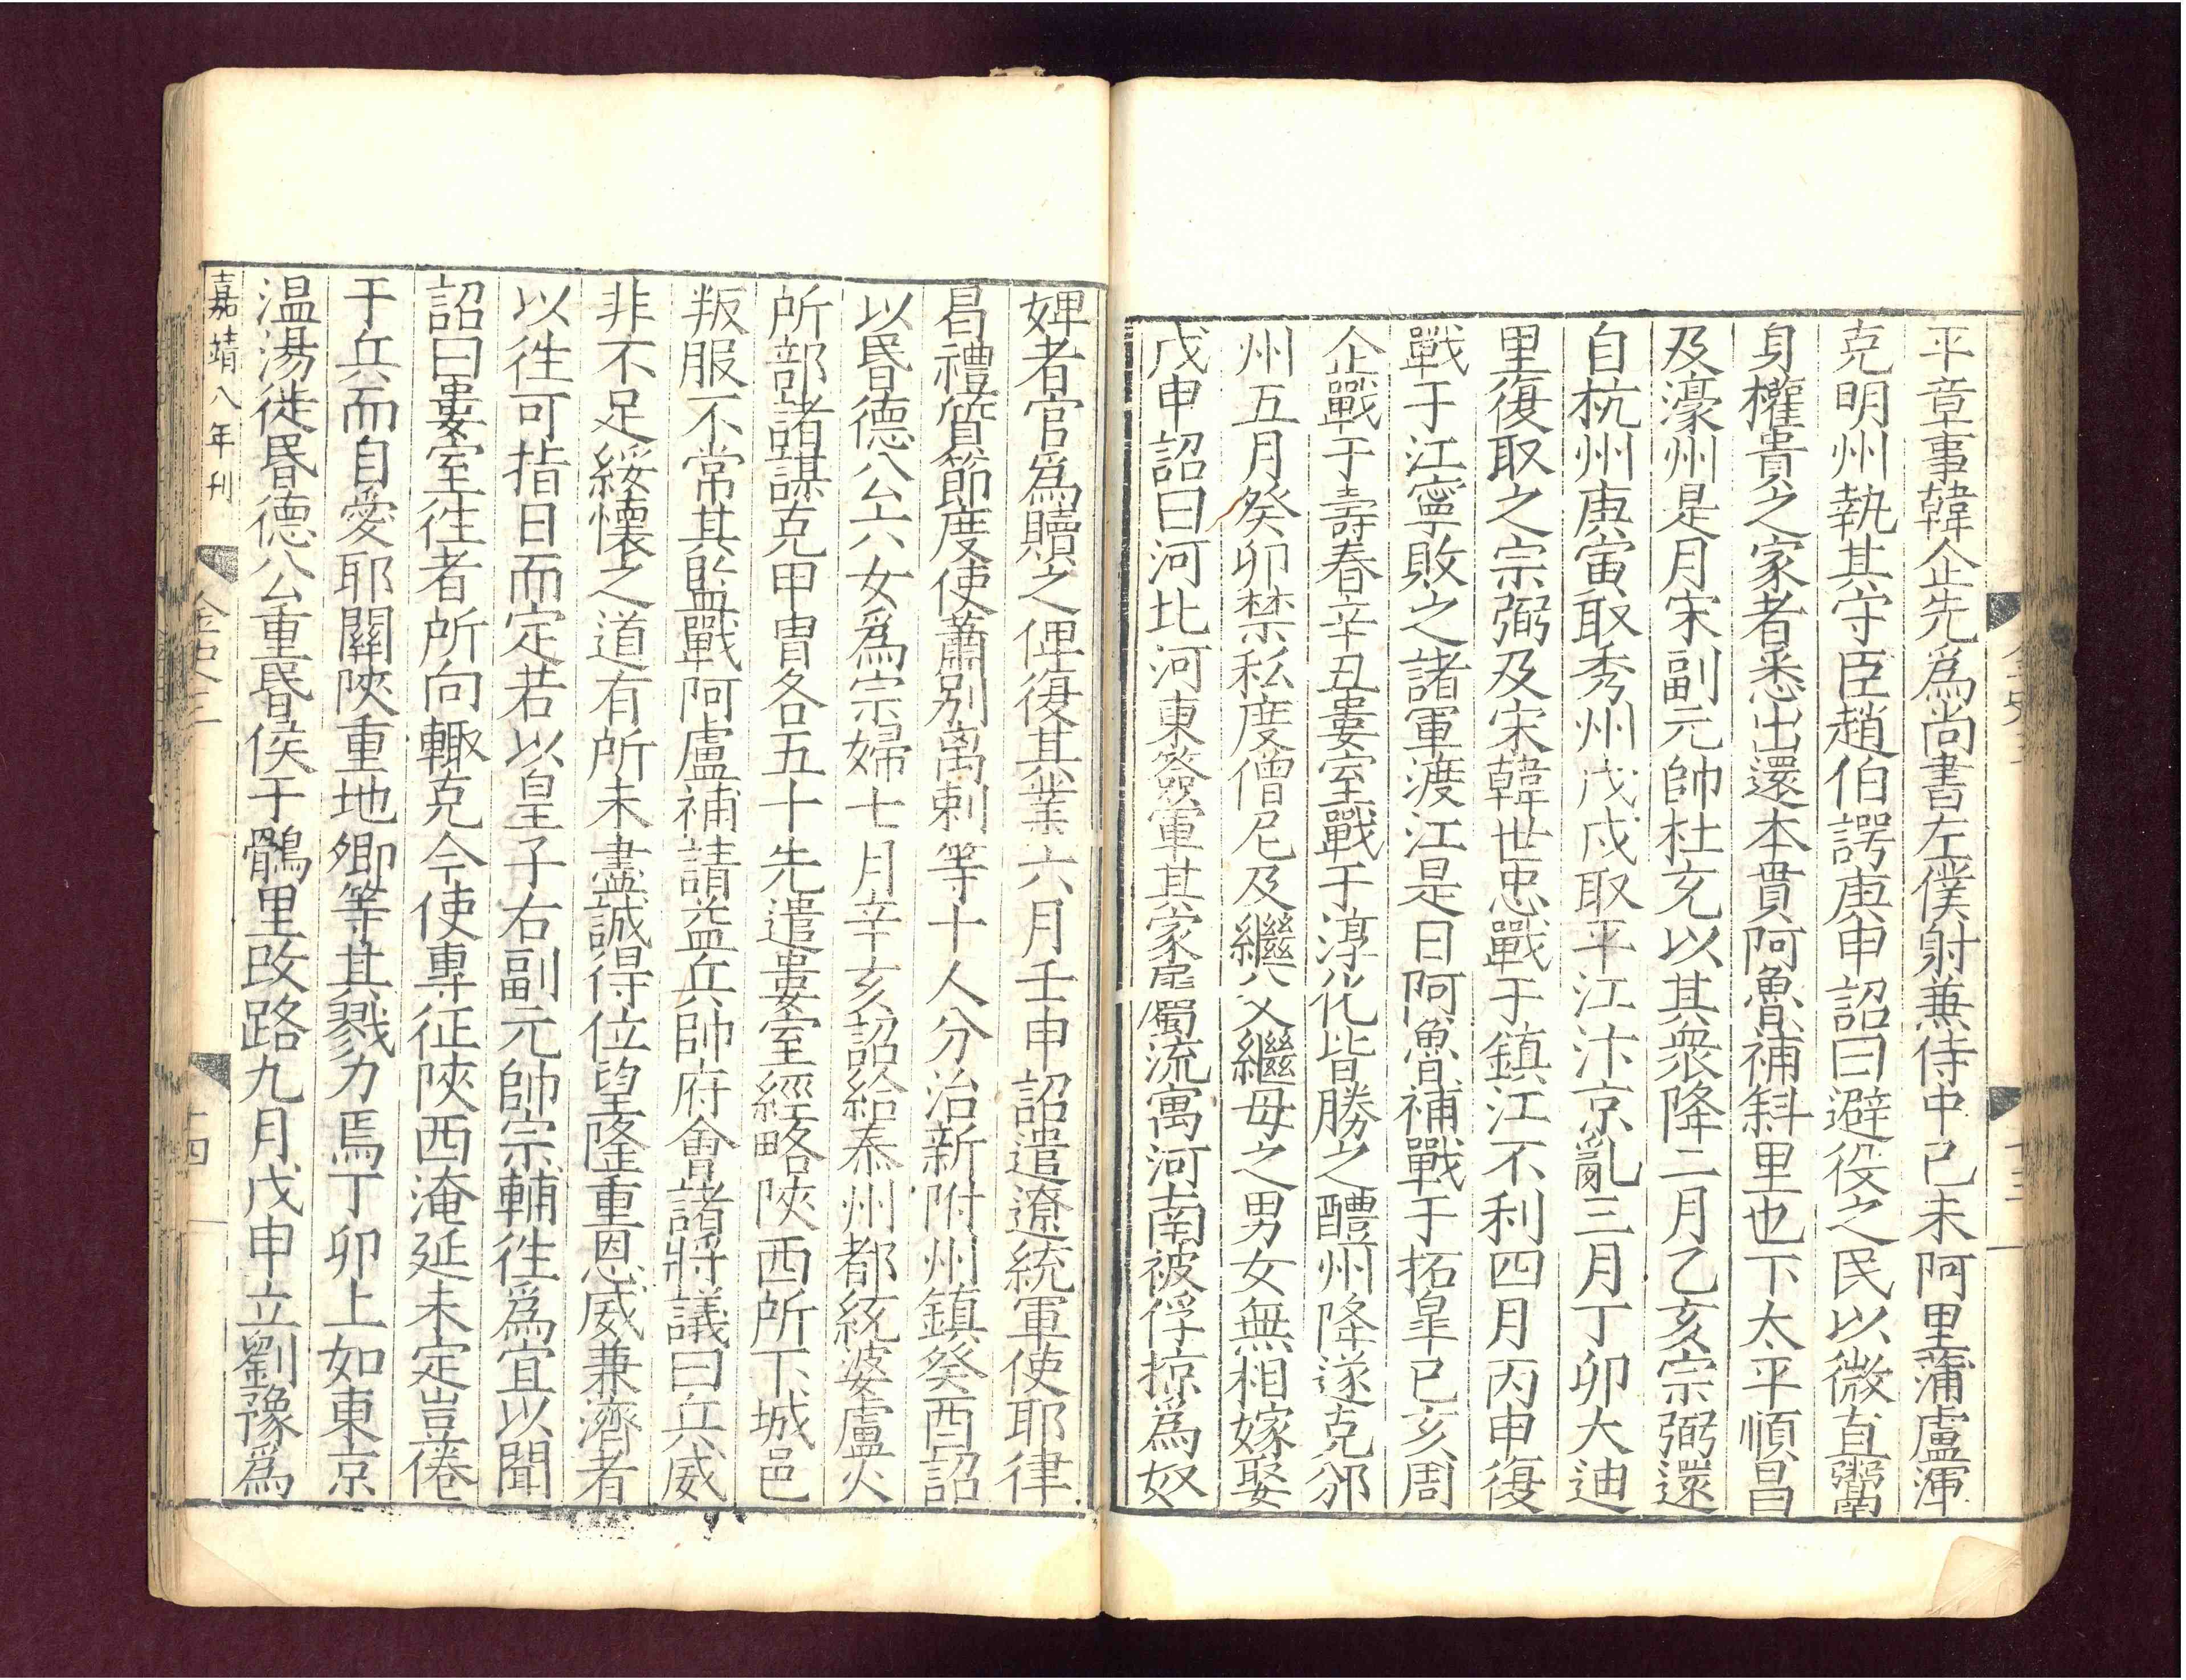 平章事韓企先爲尚書左僕射兼侍中己未阿里蒲盧渾
克明州執其守臣趙伯諤庚申詔曰避役之民以微直鬻
身權貴之家者悉出還本貫阿魯補斜里也下太平順昌
及濠州是月宋副元帥杜充以其衆降二月乙亥宗弼還
自杭州庚寅取秀州戊戌取平江汴京亂三月丁卯大迪
里復取之宗弼及宋韓世忠戰于鎮江不利四月丙申復
戰于江寧敗之諸軍渡江是日阿魯補戰于拓皐己亥周
企戰于壽春辛丑婁室戰于淳化皆勝之醴州降遂克邠
州五月癸卯禁私度僧尼及繼父繼母之男女無相嫁娶
戊申詔曰河北河東簽軍其家屬流寓河南被俘掠爲奴
婢者官爲贖之俾復其業六月壬申詔遣遼統軍使耶律
曷禮質節度使蕭别离剌等十人分治新附州鎮癸酉詔
以昬德公六女爲宗婦七月辛亥詔給泰州都統婆盧火
所部諸謀克甲冑各五十先遣婁室經略陝西所下城邑
叛服不常其監戰阿盧補請益兵帥府會諸將議曰兵威
非不足綏懷之道有所未盡誠得位望隆重恩威兼濟者
以徃可指日而定若以皇子右副元帥宗輔徃爲宜以聞
詔曰婁室徃者所向輒克今使專征陝西淹延未定豈倦
于兵而自愛耶關陝重地卿等其戮力焉丁卯上如東京
温湯徙昬德公重昬侯于鶻里改路九月戊申立劉豫爲
嘉靖八年刊
金史三
十四